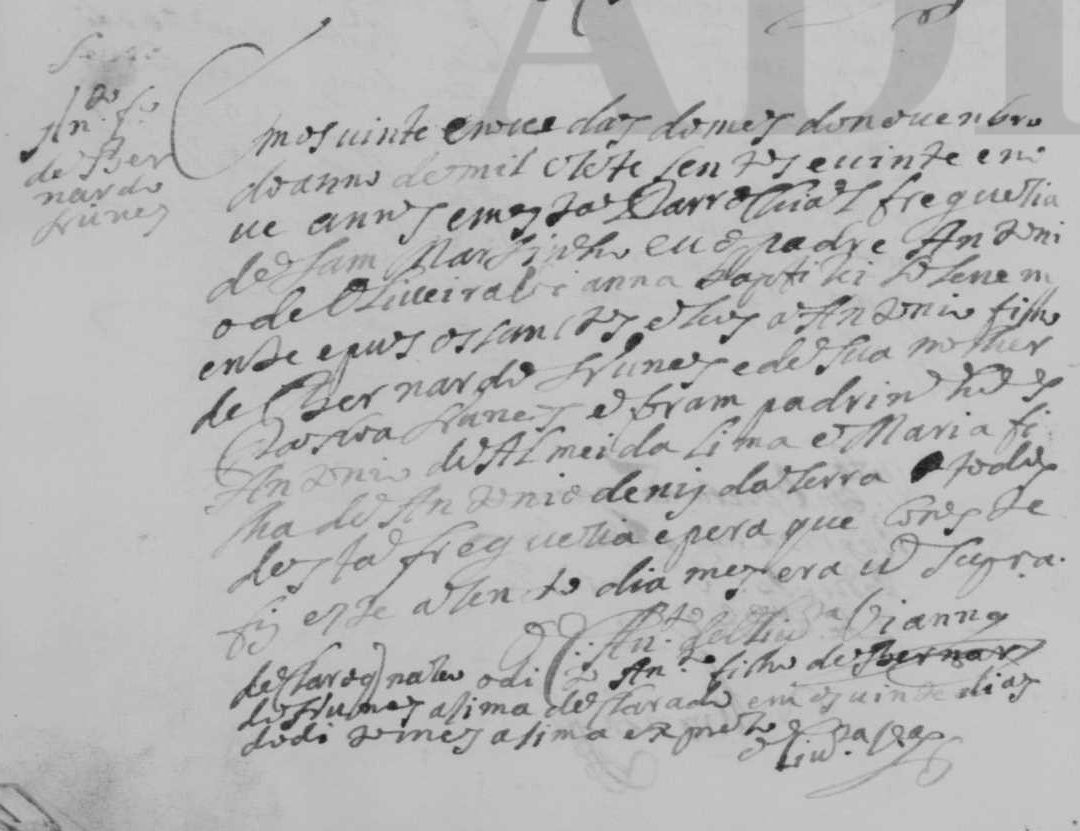 An.to f.o
de Ber
nardo
Nunes
mos uinte e noue dias do mes do nouenbro
do anno de mil e sete sentos e uinte e no
ue annos em esta Parrochial freguesia
de Sam Martinho eu o padre Antoni
o de Oliueira Vianna baptizei solenem
ente e pus os santos oleos a Antonio filho
de Bernardo Nunes e de sua molher
Nunes e foram padrinhos
Antonio de Almeida Lima e Maria fi
lha de Antonio denis da serra todos
desta freguesia e pera que conste
fiz este asento dia mes era ut supra.
O P. An.to de Oliu.ra Vianna
declaro q naseo o di
to An.to filho de Bernar
do Nunes asima declarado em os uinte dias
do dito mes asima expreso
Oliu.ra